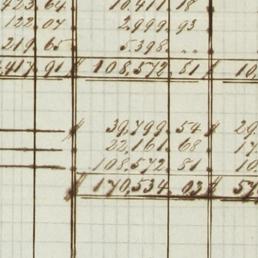 423.64 10,411.18
122.07 2,999.93
219.65 5,398. ..
,417.91 108,572.81 10,
39,799.54 29.
22,161.68 17
108,572.81 10
170,534.03 57